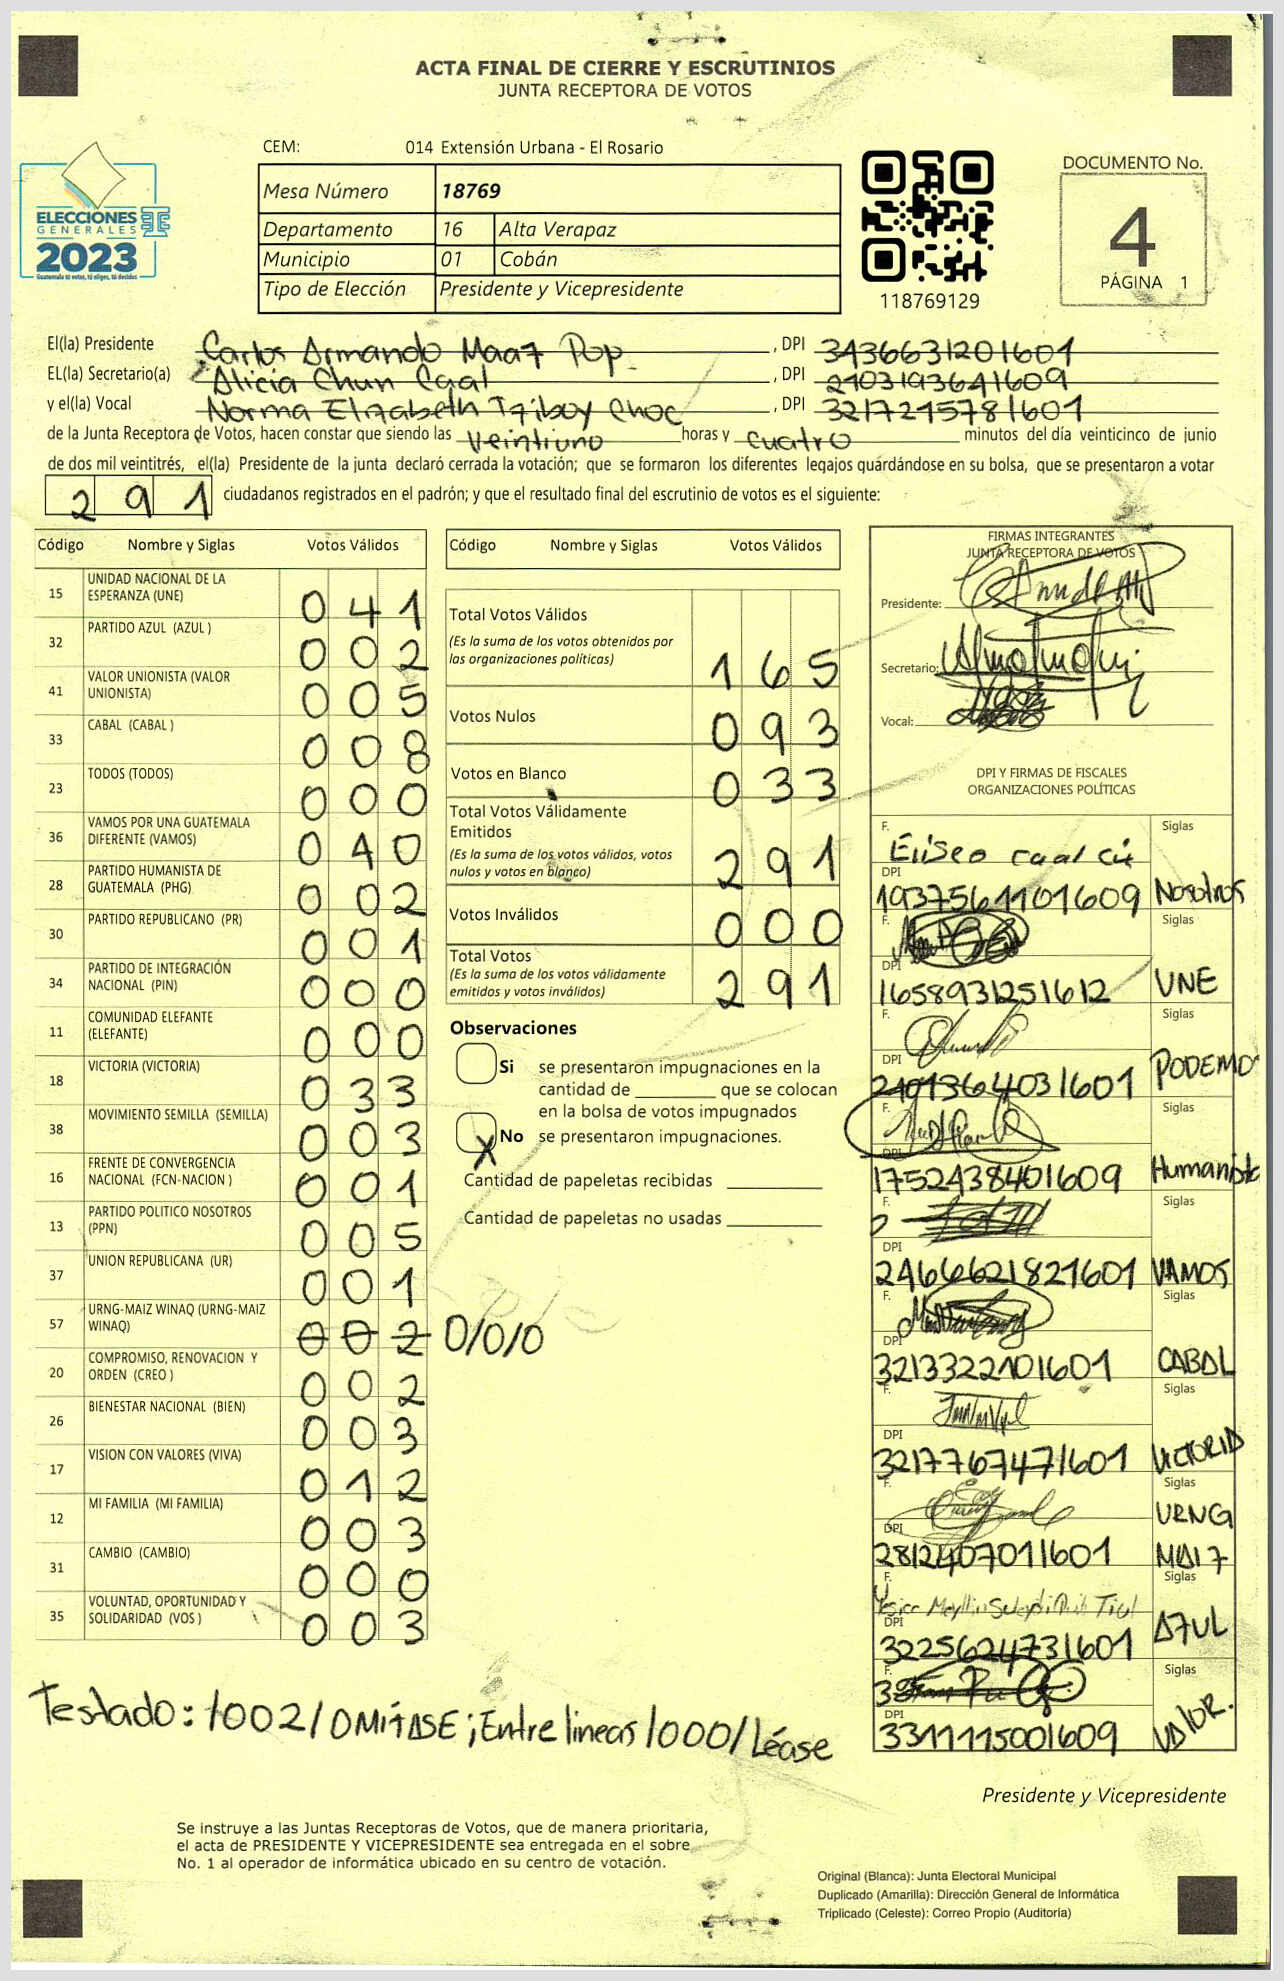 ACTA FINAL DE CIERRE Y ESCRUTINIOS
JUNTA RECEPTORA DE VOTOS
CEM: 014 Extensión Urbana - El Rosario
Mesa Número 18769
Departamento 16 Alta Verapaz
Municipio 01 Cobán
Tipo de Elección Presidente y Vicepresidente
ELECCIONES
GENERALES
2023
Guatemala tú votas, tú eliges, tú decides
118769129
DOCUMENTO No.
4
PÁGINA 1
El(la) Presidente Carlos Armando Maaz Pop , DPI 3436631201601
EL(la) Secretario(a) Alicia Chun Caal , DPI 2103193641609
y el(la) Vocal Norma Elizabeth Tziboy Choc , DPI 3217215781601
de la Junta Receptora de Votos, hacen constar que siendo las veintiuno horas y cuatro minutos del día veinticinco de junio
de dos mil veintitrés, el(la) Presidente de la junta declaró cerrada la votación; que se formaron los diferentes legajos guardándose en su bolsa, que se presentaron a votar
291 ciudadanos registrados en el padrón; y que el resultado final del escrutinio de votos es el siguiente:
Código Nombre y Siglas Votos Válidos
15 UNIDAD NACIONAL DE LA
ESPERANZA (UNE) 041
32 PARTIDO AZUL (AZUL ) 002
41 VALOR UNIONISTA (VALOR
UNIONISTA) 005
33 CABAL (CABAL ) 008
23 TODOS (TODOS) 000
36 VAMOS POR UNA GUATEMALA
DIFERENTE (VAMOS) 040
28 PARTIDO HUMANISTA DE
GUATEMALA (PHG) 002
30 PARTIDO REPUBLICANO (PR) 001
34 PARTIDO DE INTEGRACIÓN
NACIONAL (PIN) 000
11 COMUNIDAD ELEFANTE
(ELEFANTE) 000
18 VICTORIA (VICTORIA) 033
38 MOVIMIENTO SEMILLA (SEMILLA) 003
16 FRENTE DE CONVERGENCIA
NACIONAL (FCN-NACION ) 001
13 PARTIDO POLITICO NOSOTROS
(PPN) 005
37 UNION REPUBLICANA (UR) 001
57 URNG-MAIZ WINAQ (URNG-MAIZ
WINAQ) 002 0/0/0
20 COMPROMISO, RENOVACION Y
ORDEN (CREO ) 002
26 BIENESTAR NACIONAL (BIEN) 003
17 VISION CON VALORES (VIVA) 012
12 MI FAMILIA (MI FAMILIA) 003
31 CAMBIO (CAMBIO) 000
35 VOLUNTAD, OPORTUNIDAD Y
SOLIDARIDAD (VOS ) 003
Código Nombre y Siglas Votos Válidos
Total Votos Válidos
(Es la suma de los votos obtenidos por
las organizaciones políticas) 165
Votos Nulos 093
Votos en Blanco 033
Total Votos Válidamente
Emitidos
(Es la suma de los votos válidos, votos
nulos y votos en blanco) 291
Votos Inválidos 000
Total Votos
(Es la suma de los votos válidamente
emitidos y votos inválidos) 291
Observaciones
Si se presentaron impugnaciones en la
cantidad de ________ que se colocan
en la bolsa de votos impugnados
X No se presentaron impugnaciones.
Cantidad de papeletas recibidas ________
Cantidad de papeletas no usadas ________
FIRMAS INTEGRANTES
JUNTA RECEPTORA DE VOTOS
Presidente:
Secretario:
Vocal:
DPI Y FIRMAS DE FISCALES
ORGANIZACIONES POLÍTICAS
F. Eliseo Caal Siglas
DPI
1937561101609 Nosotros
F. Siglas
DPI
1658931251612 UNE
F. Siglas
DPI
2101364031601 PODEMO
F. Siglas
DPI
1752438401609 Humanista
F. Siglas
DPI
2466621821601 VAMOS
F. Siglas
DPI
3213322101601 CABAL
F. Siglas
DPI
3217767471601 VICTORIA
F. Siglas
URNG
DPI
2812407011601 MAIZ
F. Siglas
DPI
3225624731601 AZUL
F. Siglas
DPI
3311115001609 VALOR.
Testado: /002/ OMÍTASE ; Entre lineas /000/ Léase
Presidente y Vicepresidente
Se instruye a las Juntas Receptoras de Votos, que de manera prioritaria,
el acta de PRESIDENTE Y VICEPRESIDENTE sea entregada en el sobre
No. 1 al operador de informática ubicado en su centro de votación.
Original (Blanca): Junta Electoral Municipal
Duplicado (Amarilla): Dirección General de Informática
Triplicado (Celeste): Correo Propio (Auditoría)